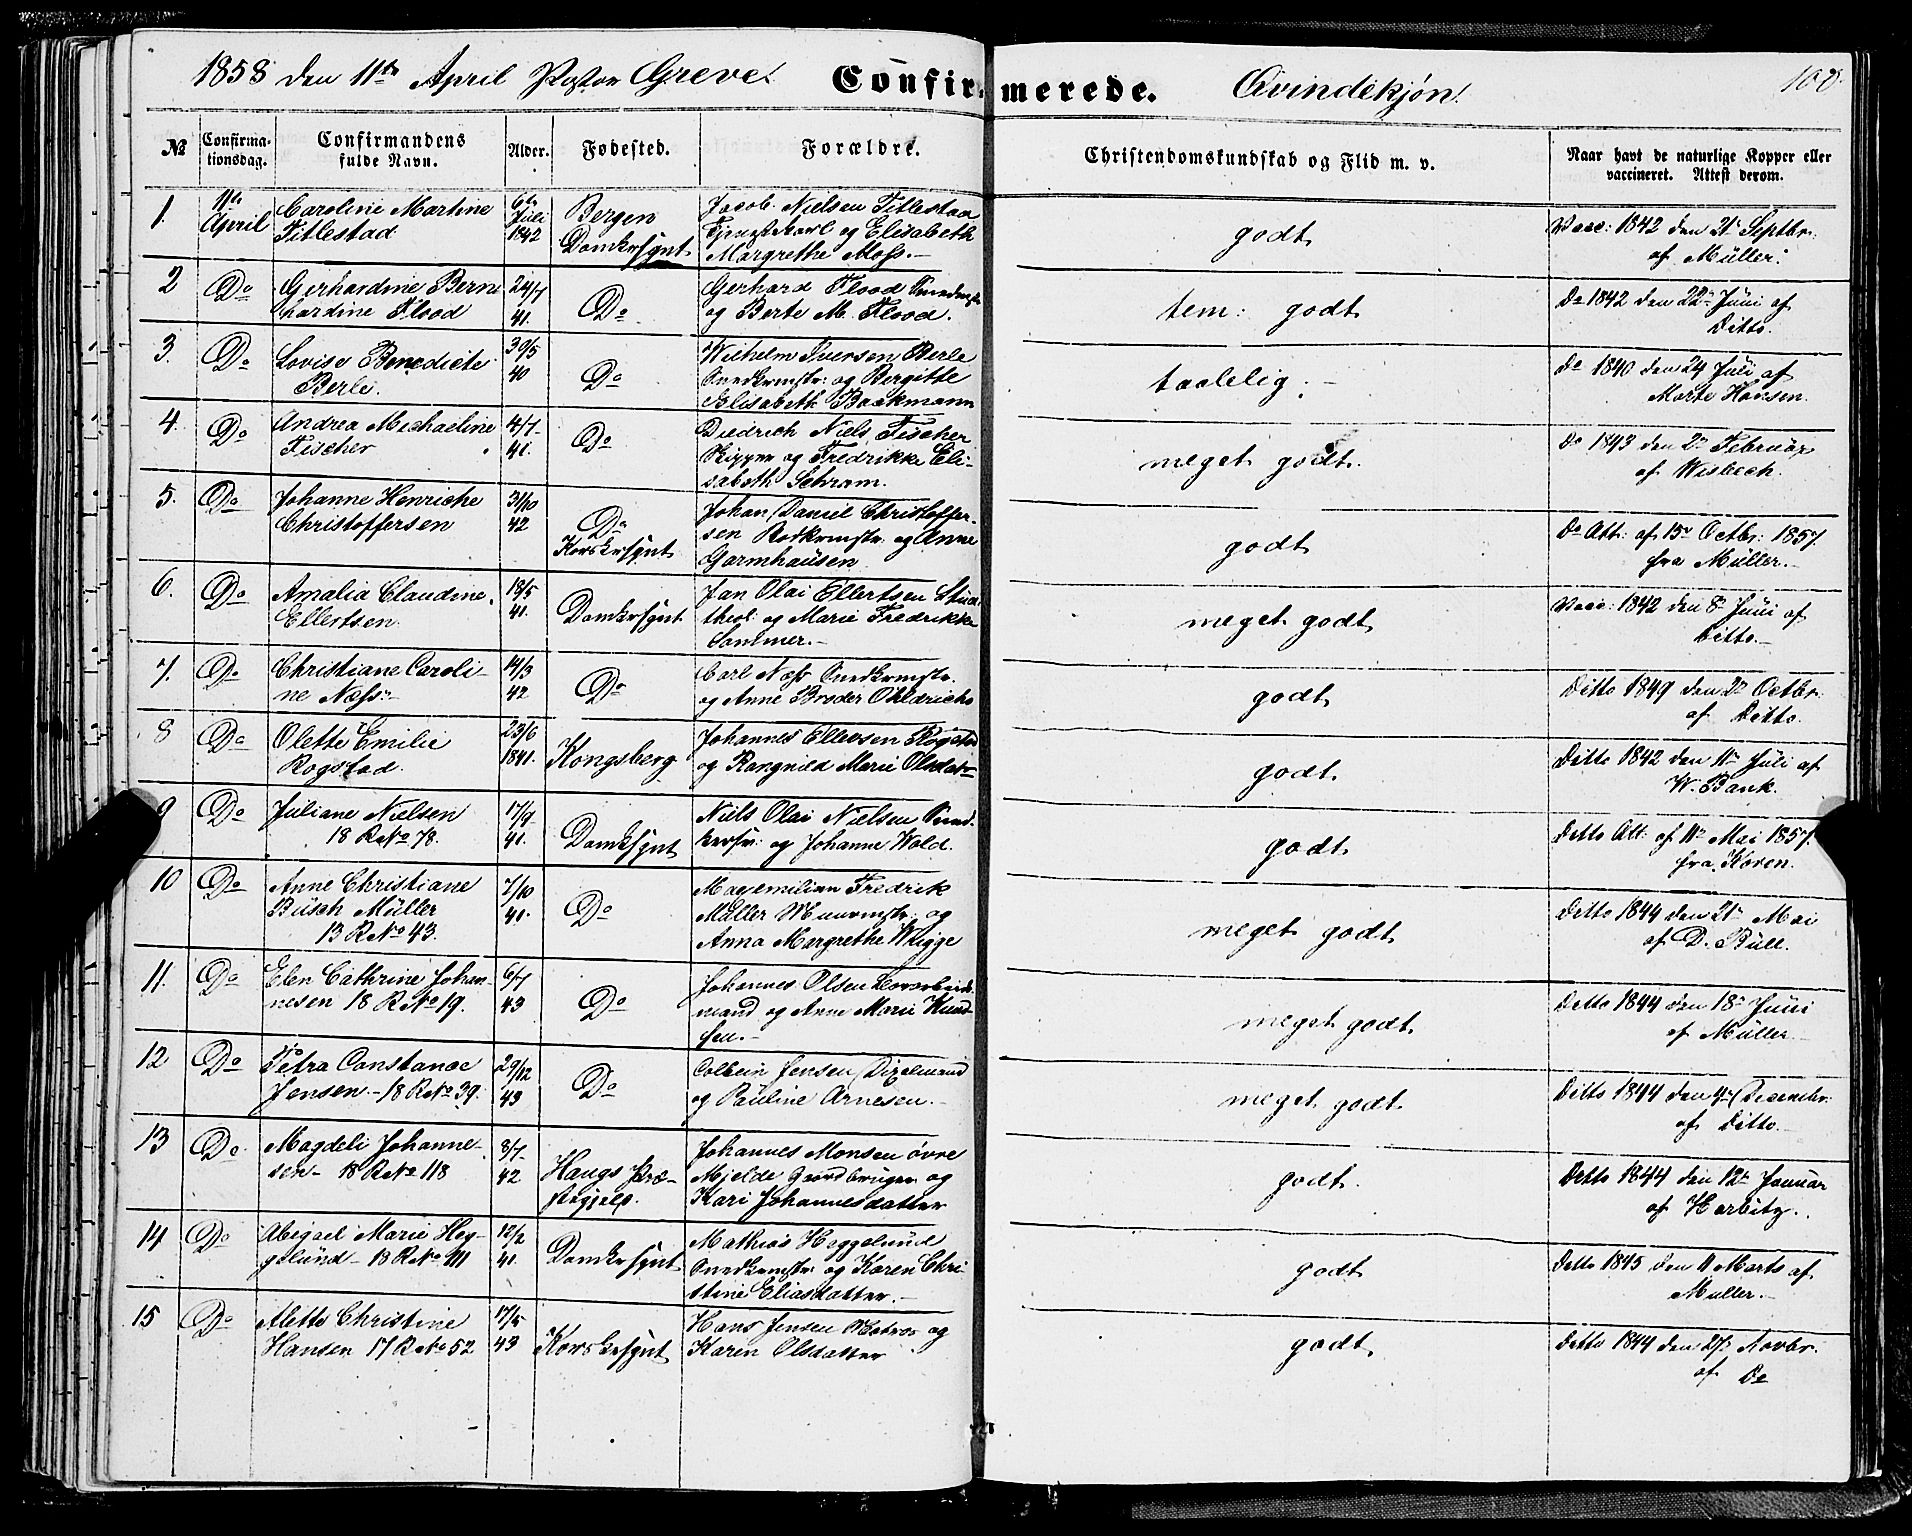 1858 den 11te April Pastor Greve.
Confirmerede.
Qvindekjøn.
100.
№
Confirma-
tionsdag.
Confirmandens
fulde Navn.
Alder.
Fødested.
Forældre.
Christendomskundskab og Flid m. v.
Naar havt de naturlige Kopper eller
vaccineret. Attest derom.
1.
11te
April
Caroline Martine
Titlestad
6te
Juli
1842
Bergen
Domkrsgnt
Jacob Nielsen Titlestad
Tjenestkarl og Elisabeth
Margrethe Moss.-
godt
Vacc: 1842 den 21. Septbr:
af Müller.
2
Do
Gerhardine Bern-
hardine Flood
24/7
41.
Do
Gerhard Flood Snedm
og Berte M. Flood.
tem: godt
Do 1842 den 22. Juni af
Ditto.
3.
Do
Lovise Benedicte
Berle.
30/5
40
Do
Wilhelm Iversen Berle
Snedkrmstr: og Bergitte
Elisabeth Backmann
taalelig.-
Do 1840 den 24 Juli af
Marte Hansen.
4.
Do
Andrea Michaeline
Fischer
4/7
41.
Do
Diedrich Niels Fischer
Skipper og Fredrikke Eli-
sabeth Schram.
meget godt.
Do 1843 den 2. Februar
af Wisbech.
5.
Do
Johanne Henriche
Christoffersen
31/10
42
Do
Korskrsgnt
Johan Daniel Christoffer-
sen Rodkrmstr: og Anne
Garmhausen
godt
Do Att: af 15. Octbr: 1857.
fra Müller.-
6.
Do
Amalia Claudine
Ellertsen
18/5
41.
Domkrsgnt
Jan Olai Ellertsen Stud.
theol: og Marie Fredrikke
Sommer.-
meget godt
Vacc: 1842 den 8. Juni af
Ditto.-
7.
Do
Christiane Caroli-
ne Næss.-
14/3
42
Do
Carl Næss Snedkrmstr.
og Anne Broder Ohldrichs
godt
Ditto 1849 den 2. Octbr.
af Ditto.
8
Do
Olette Emilie
Rogstad.
23/6
1841.
Kongsberg
Johannes Ellevsen Rogstad
og Rangnild Marie Olsdatr
godt
Ditto 1842 den 11. Juli af
W. Bank.
9
Do
Juliane Nielsen
18 R. No 78.
17/9
41.
Domksgnt
Niels Olai Nielsen Sned-
kersv: og Johanne Wold.
godt
Ditto Att: af 11. Mai 1857.
fra Koren.
10
Do
Anne Christiane
Busch Müller
13 R No 43.
7/10
41.
Do
Maxemilian Fredrik
Müller Muurmstr: og
Anna Margrethe Wigge
meget godt
Ditto 1844 den 21. Mai
af D. Büll.
11.
Do
Elen Cathrine Johan-
nesen 18 R No 19.
6/7
43
Do
Johannes Olsen
mand og Anne Marie Knud-
sen.-
meget godt
Ditto 1844 den 18. Juni
af Müller.-
12
Do
Petra Constance
Jensen.- 18 R No 39.
29/12
43
Do
Colbein Jensen
og Pauline Arnesen.-
meget godt
Ditto 1844 den 4. December
af Ditto.-
13
Do
Magdeli Johanne-
sen- 18 R No 118
3/7
42
Haugs Præ-
stegjeld.
Johannes Monsen øvre
Mjelde Gaardbruger og
Kari Johannesdatter
godt.
Ditto 1844 den 12. Januar
af Harbitz.
14
Do
Abigael Marie Heg-
gelund- 18 R No 111
12/2
41.
Domkrsgnt
Mathias Heggelund
Snedkrmstr: og Karen Chri-
stine Eliasdatter.-
godt
Ditto 1845 den 11 Marts af
Müller.-
15
Do
Alette Christine
Hansen 17 R No 52
17/5
43
Korskrsgnt
Hans Jensen Matros og
Karen Olsdatter
godt
Ditto 1844 den 27. Novbr.
af Do